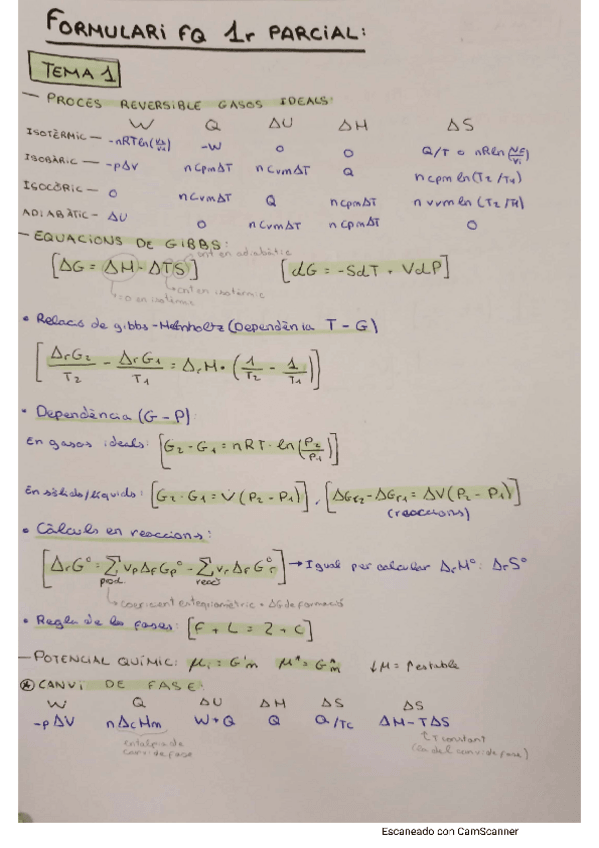 FORMULARI FQ 1r PARCIAL:
TEMA 1
— PROCÉS REVERSIBLE GASOS IDEALS:
W Q ΔU ΔH ΔS
ISOTÈRMIC — -nRTln(V2/V1) -W 0 0 Q/T o nRln(Vf/Vi)
ISOBÀRIC — -pΔV nCpmΔT nCvmΔT Q ncpmln(T2/T1)
ISOCÒRIC — 0 nCvmΔT Q ncpmΔT nvvmln(T2/T1)
ADIABÀTIC - ΔU 0 nCvmΔT nCpmΔT 0
— EQUACIONS DE GIBBS:
cnt en adiabàtic
[ΔG = ΔH - ΔTS] [dG = -SdT + VdP]
cnt en isotèrmic
0 en isotèrmic
• Relació de gibbs-Helmholtz (Dependència T - G)
[ΔrG2/T2 - ΔrG1/T1 = ΔrH · (1/T2 - 1/T1)]
• Dependència (G - P):
En gasos ideals: [G2 - G1 = nRT · ln(P2/P1)]
En sòlido/líquido: [G2 - G1 = V(P2 - P1)], [ΔGr2 - ΔGr1 = ΔV(P2 - P1)]
(reaccions)
• Càlculs en reaccions:
[ΔrG° = Σ νpΔfGp° - Σ νrΔfGr°] → Igual per calcular ΔrH° i ΔrS°
prod. reac
coeficient estequiomètric · ΔG de formació
• Regla de les fases: [F + L = 2 + C]
— POTENCIAL QUÍMIC: μi = G*m μ* = G*m ↓μ = + estable
* CANVI DE FASE:
W Q ΔU ΔH ΔS ΔS
-pΔV nΔcHm W+Q Q Q/Tc ΔH - TΔS
entalpia de
canvi de fase
T constant
(la del canvi de fase)
Escaneado con CamScanner